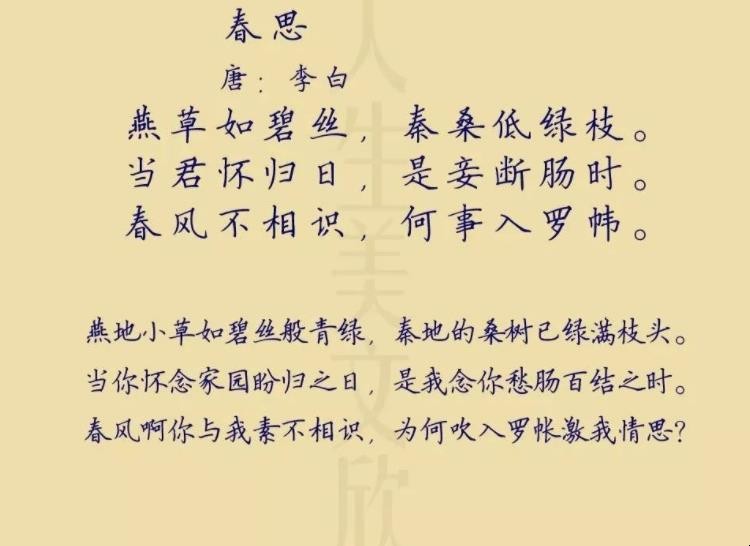 春思
唐：李白
燕草如碧丝，秦桑低绿枝。
当君怀归日，是妾断肠时。
春风不相识，何事入罗帏。
燕地小草如碧丝般青绿，秦地的桑树已绿满枝头。
当你怀念家园盼归之日，是我念你愁肠百结之时。
春风啊你与我素不相识，为何吹入罗帐激我情思？
人生美文欣